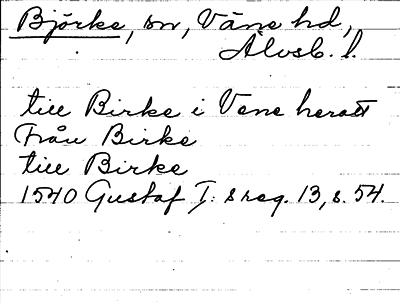 Björke, sn, Väne hd,
Älvsb. l.
till Birke i Vene heratt
Från Birke
till Birke
1540 Gustaf I:s reg. 13, s. 54.